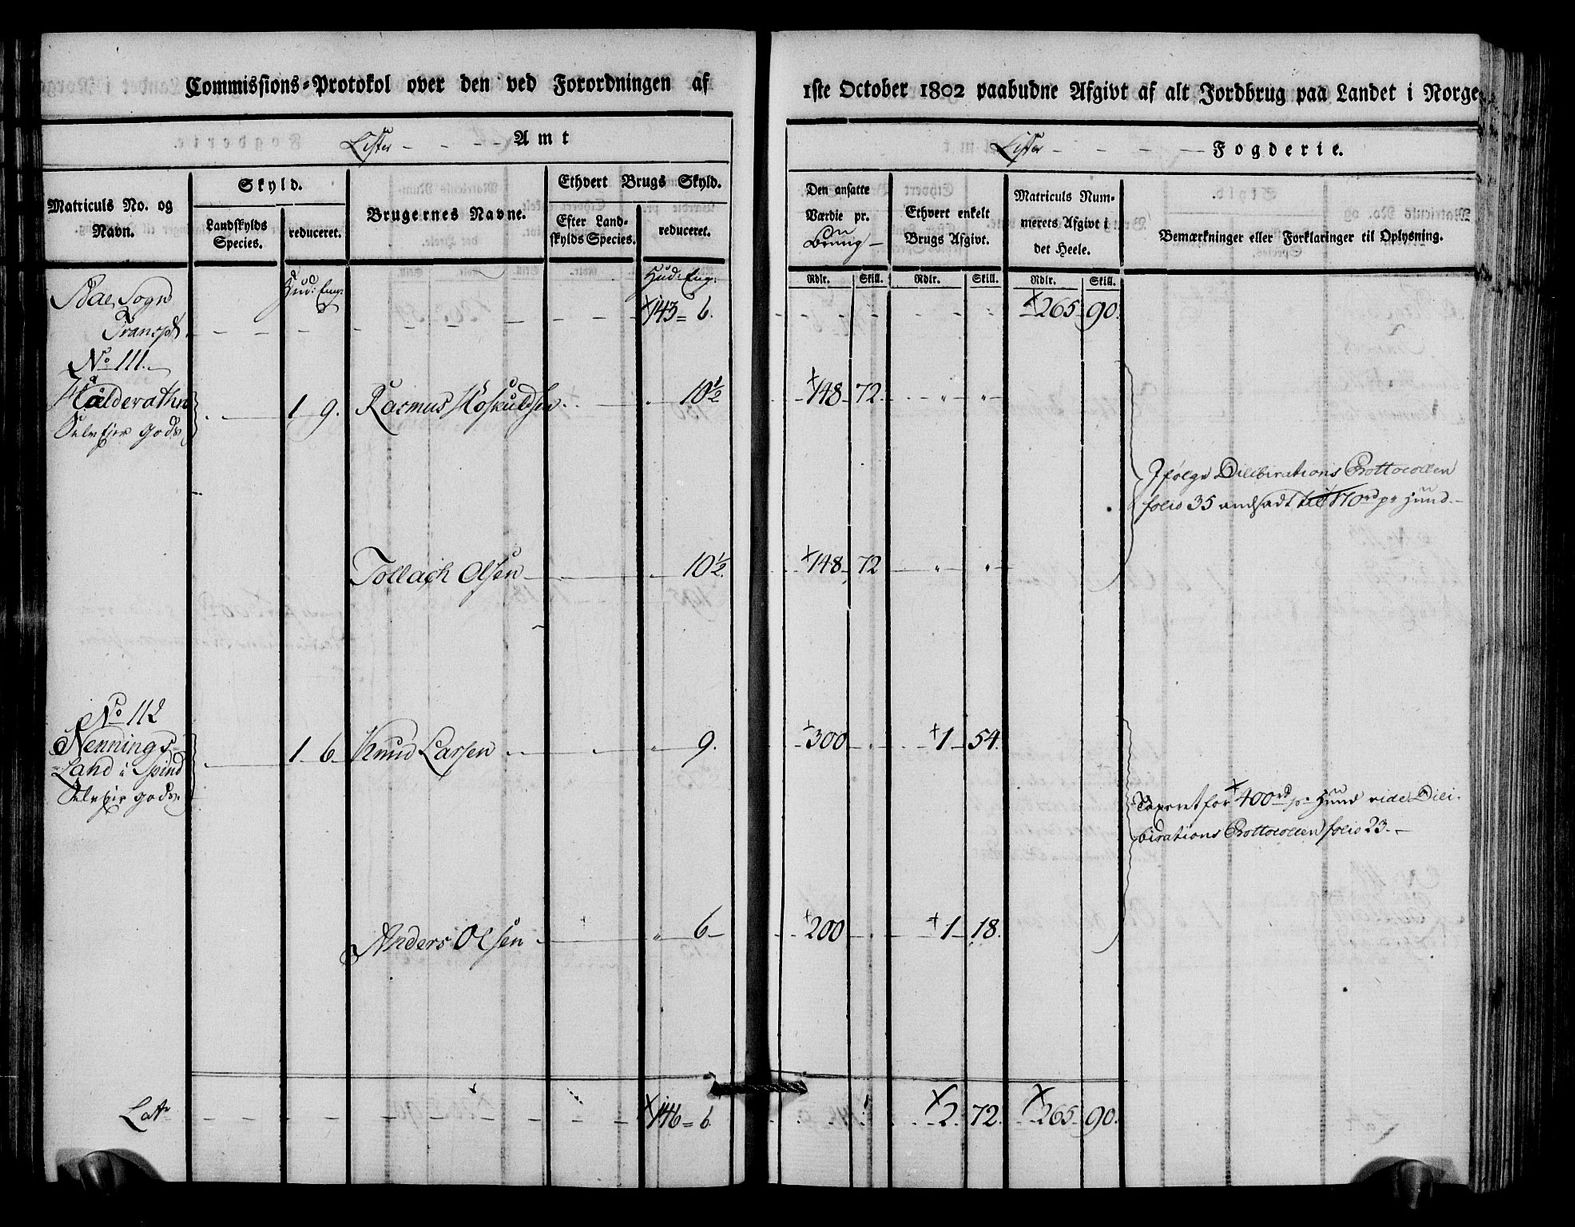 Commissions-Protokol over den ved Forordningen af
1ste October 1802 paabudne Afgivt af alt Jordbrug paa Landet i Norge
Lister Amt
Lister Fogderie.
Matriculs No. og Navn.
Skyld.
Landskylds Species.
reduceret.
Brugernes Navne.
Ethvert Brugs Skyld.
Efter Landskylds Species.
reduceret.
Den ansatte Værdie pr. Brug
Ethvert enkelt Brugs Afgivt.
Matriculs Nummerets Afgivt i det Heele.
Bemærkninger eller Forklaringer til Oplysning.
Rdlr. Skill. Rdlr. Skill. Rdlr. Skill.
Hud: Eng: Hud: Eng:
Sogn
Transpt 143 = 6. 265 90.
No 111.
Rasmus Höskuldsen 1 9. 10½ 148 72 " "
Selveier Gods
Ifølge Dilibirations Prottocollen
folio 35 andsadt til 170 rd pr Hund.
Tollach Olsen 10½ 148 72 " "
No 112
Nennings
Land i Spind 1 6 Knud Larsen " 9. 300 1 54.
Selveier gods
Taxeret for 400 rd pr Hund vide Dili-
birations Prottocollen folio 23.
Anders Olsen " 6 200 1 18.
Latr 146 = 6 2 72. 265 90.